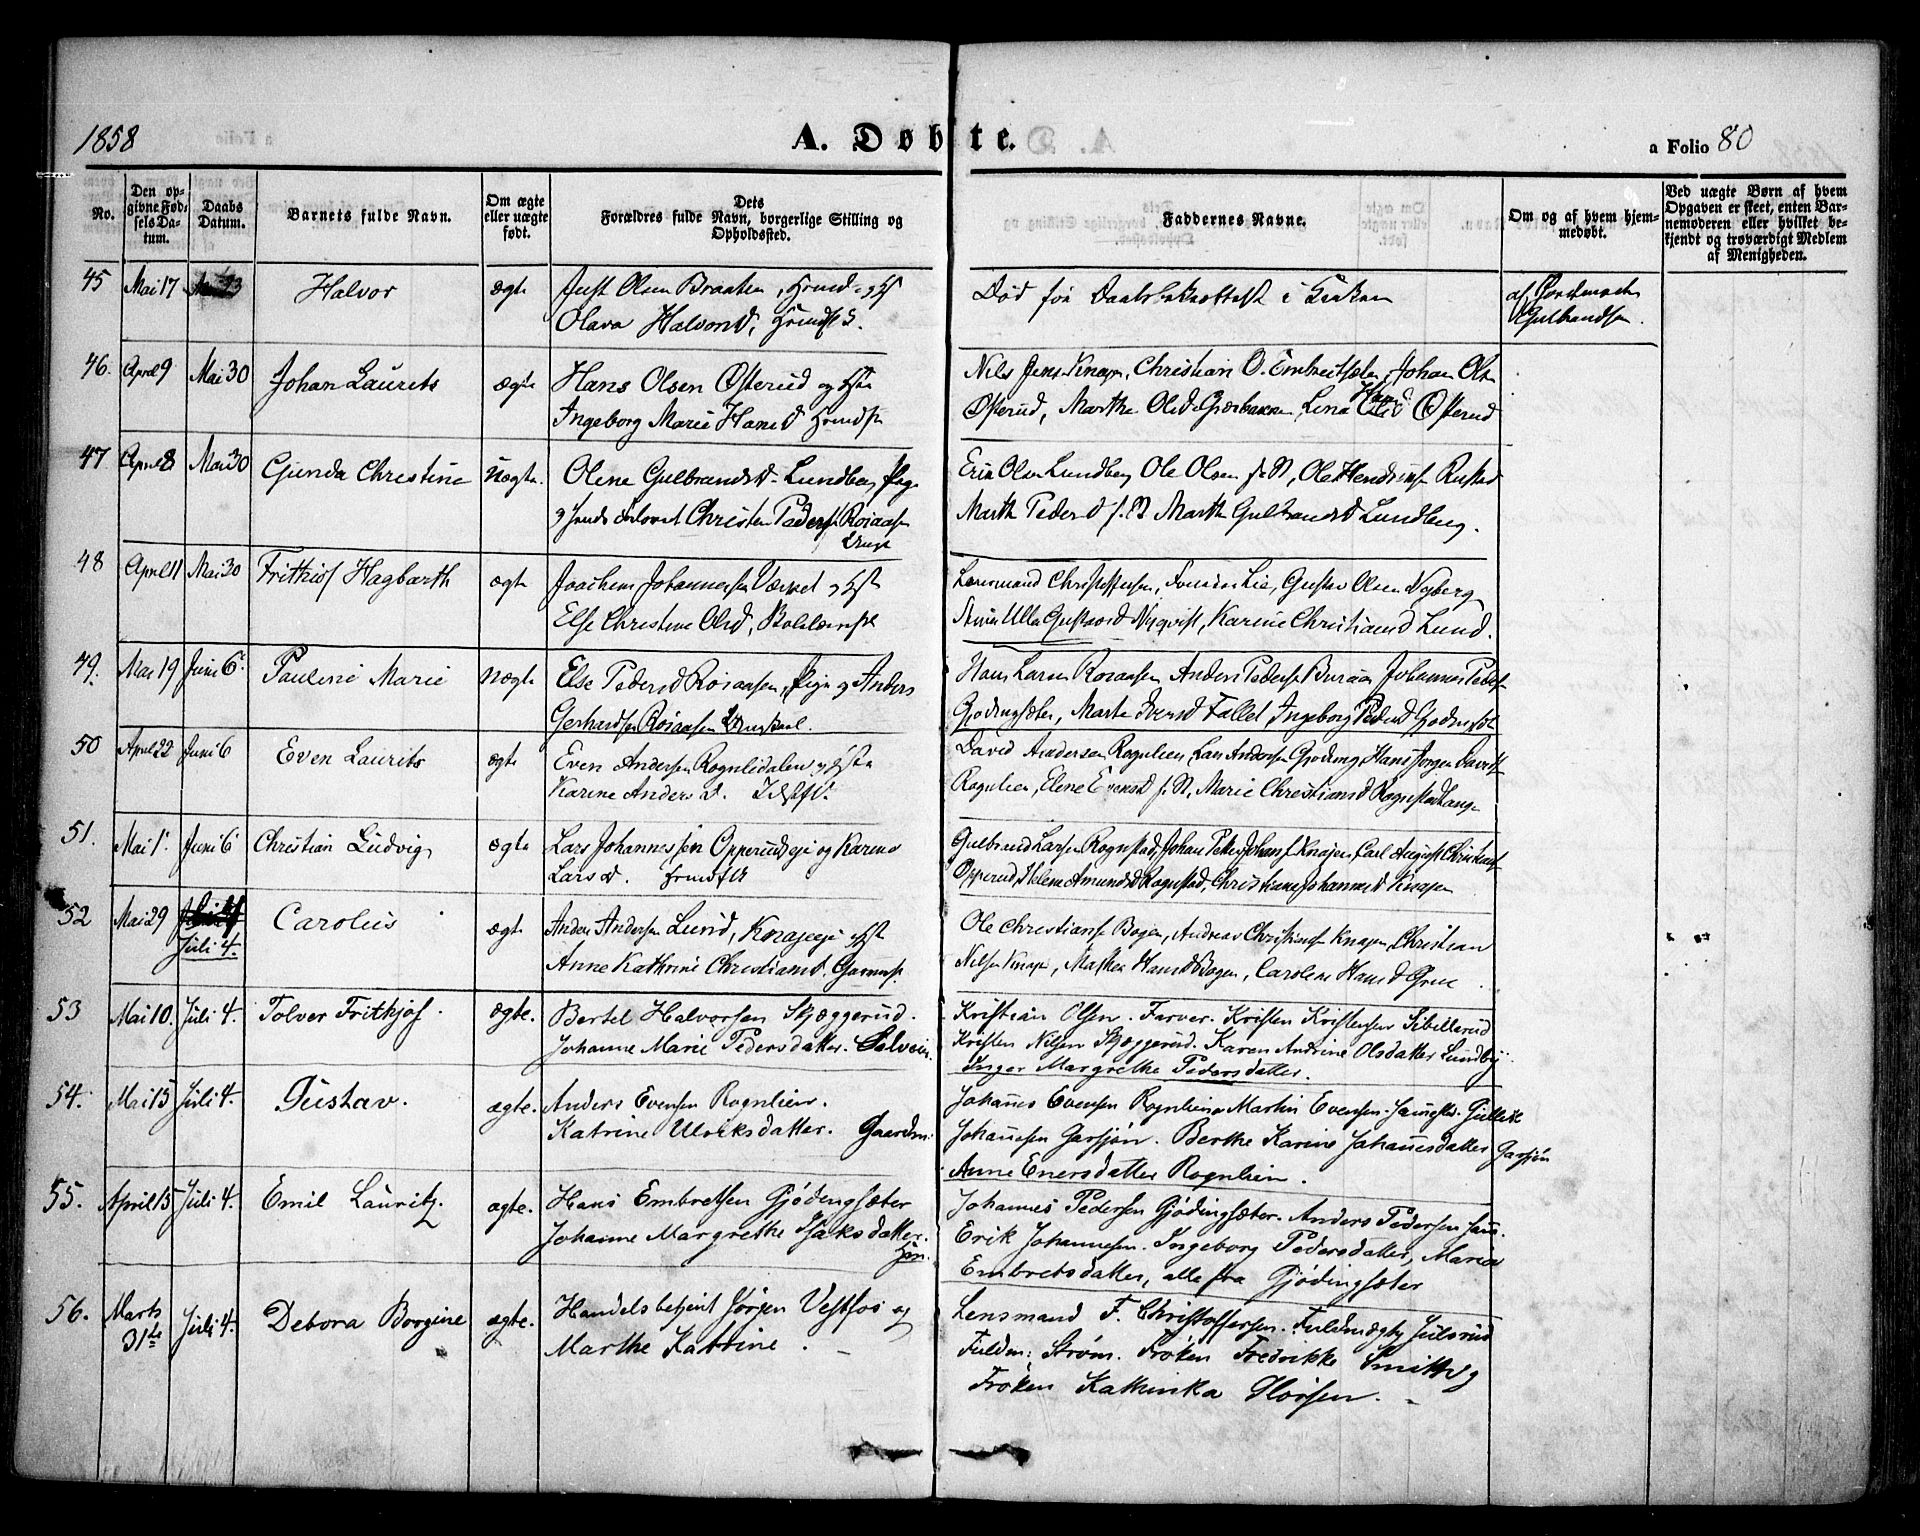 1858
A. Døbte.
a Folio 80
No.
Den opgivne Fødselsdatum.
Daabs Datum.
Barnets fulde Navn.
Om ægte eller uægte født.
Dets Forældres fulde Navn, borgerlige Stilling og Opholdssted.
Faddernes Navne.
Om og af hvem hjemmedøbt.
Ved uægte Børn af hvem Opgaven er skeet, enten Barnemoderen eller hvilket bekjendt og troværdigt Medlem af Menigheden.
45 Mai 17 Halvor ægte Just Olsen Braaten
Olava Halvorsd,
Død før Daabsbekræftelse i Kirken
af
Gulbrandsen
46. April 9 Mai 30 Johan Laurits ægte Hans Olsen Østerud og Hst
Ingeborg Marie Hansd
Nils Jens. Knapp, Christian O. Embretsæter, Johan Ols
Østerud, Marthe Olsd Lena Hansd. Østerud
47 April 8 Mai 30 Gunda Christine Uægte. Olene Gulbrandsd Lundberg Pige
Christen Peders Rosaasen
Erik Olsen Lundberg Ole Olsen s. St, Ole Hendriks Rustad
Marth Pedersd s. St Marth Gulbrandsd Lundberg.
48 April 11 Mai 30 Frithiof Hagbarth ægte Joachim Johannessen
Else Christine Olsd,
Lensmand Christoffersen, Lie, Gustav Olsen Nyberg
Ulla Gustavsd Nyqvist, Karine Christiansd Lund.
49. Mai 19 Juni 6. Pauline Marie Uægte Else Pedersd Rosaasen, Pige og Anders
Gerhardsen Rosaasen Ungkarl.
Hans Larsen Rosaasen Anders Peders Johannes Peders
Gjødingsæter, Marte Iversd Fallet Ingeborg Pedersd
50 April 22 Juni 6 Even Laurits ægte Even Andersen Rognlidalen og Hste
Karine Andersd.
David Andersen Rognlien, Lars Andersen Gjøding Hans Jørgen Davids
Rognlien, Elene Evensd s. St, Marie Christiansd
51. Mai 1. Juni 6 Christian Ludvig ægte Lars Johannessen Opperudeje og Karine
Larsd.
Gulbrand Larsen Rognstad, Johan Petter Johans Knapp, Carl August Christians
Opperud, Helene Amundsd Rognstad, Christiane Johannesd Knapp
52 Mai 29 Juli 4. Carolus ægte Anders Andersen Lund, Hst
Anne Kathrine Christiansd.
Ole Christians Bogen, Andreas Christians Knapp, Christian
Nilsen Knapp, Hansd Bogen, Caroline Hansd
53 Mai 10. Juli 4. Tolver Frithjof. ægte. Bertel Halvorsen Skjæggerud.
Johanne Marie Pedersdatter. Selveier.
Kristian Olsen. Farver. Kristen Kristensen Sibillerud
Kristen Nilsen Skjæggerud. Karen Andrine Olsdatter Lundby
Inger Margrethe Pedersdatter.
54. Mai 15 Juli 4. Gustav. ægte. Anders Evensen Rognlien.
Katrine Ulriksdatter. Gaardm.
Johannes Evensen Rognlien Martin Evensen. Gullik
Johannesen Garsjøn. Berthe Karine Johannesdatter Garsjøn
Anne Enersdatter Rognlien.
55. April 15 Juli 4. Emil Lauritz. ægte. Hans Embretsen Gjødingsæter
Johanne Margrethe Isaksdatter.
Johannes Pedersen Gjødingsæter. Anders Pedersen
Erik Johannesen. Ingeborg Pedersdatter, Maria
Embretsdatter, alle fra Gjødingsæter
56. Marts 31te Juli 4. Debora Borgine ægte. Handelsbetjent Jørgen Vestfos og
Marthe Katrine.
Lensmand F. Christoffersen. Fuldmægtig Julsrud
Fuldm: Strøm. Frøken Fredrikke Smith og
Frøken Kathinka